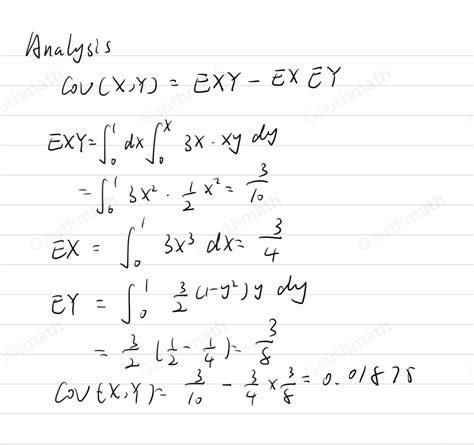 Analysis
Cov(X,Y) = EXY - EX EY
EXY = ∫₀¹ dx ∫₀ˣ 3x · xy dy
= ∫₀¹ 3x² · 1/2 x² = 3/10
EX = ∫₀¹ 3x³ dx = 3/4
EY = ∫₀¹ 3/2 (1-y²) y dy
= 3/2 (1/2 - 1/4) = 3/8
Cov(X,Y) = 3/10 - 3/4 × 3/8 = 0.01875